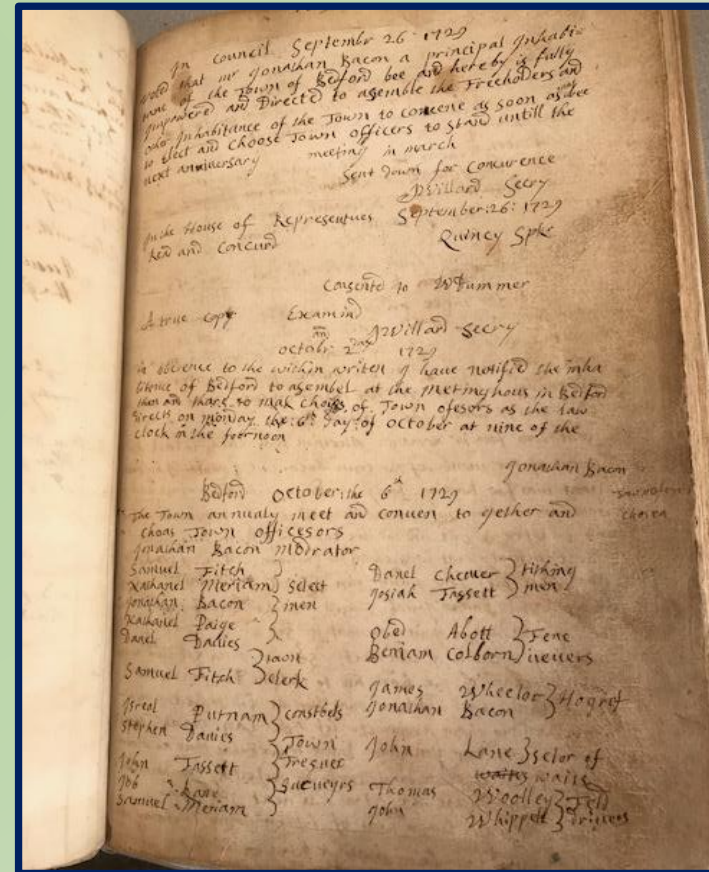 In council September 26 1729
voted that mr Jonathan Bacon a principal Inhabi-
tane of the Town of Bedford bee and hereby is fully
Impowered and Directed to asemble the Freeholders and
other Inhabitance of the Town to convene as soon as may bee
to Elect and choose Town officers to stand untill the
next anniversary meeting in march
Sent down for Concurence
JWillard Secry
In the House of Representives September: 26: 1729
Read and Concurd
Quincy Spkr
Consented to WDummer
A true copy Examind
JWillard Secry
an
october 2 day 1729
in obience to the within writen I have notified the inha
bitence of Bedford to asembel at the Metinghous in Bedford
then and thare to mak choies of Town ofesors as the law
directs on monday the: 6th day: of October at nine of the
clock in the foornoon
Jonathan Bacon
Bedford October: the 6th 1729
The Town annualy meet and conven to gether and
choas Town officesors
chosen
Jonathan Bacon modrator
Samuel Fitch
Nathanel Meriam Select
Jonathan Bacon men
Nathanel Paige
Danel Davies
Town
Samuel Fitch clerk
Isreal Putnam constbels
Stephen Davies
Town
John Fassett Tresuer
Job Lane Sucueyrs
Samuel Meriam
Danel Cheever tithing
Josiah Fassett men
Obed Abott Fene
Beniam Colborn veuers
James Wheelor Hogref
Jonathan Bacon
John Lane selor of
waits waits
Thomas Woolley Feld
John Whippell drivers